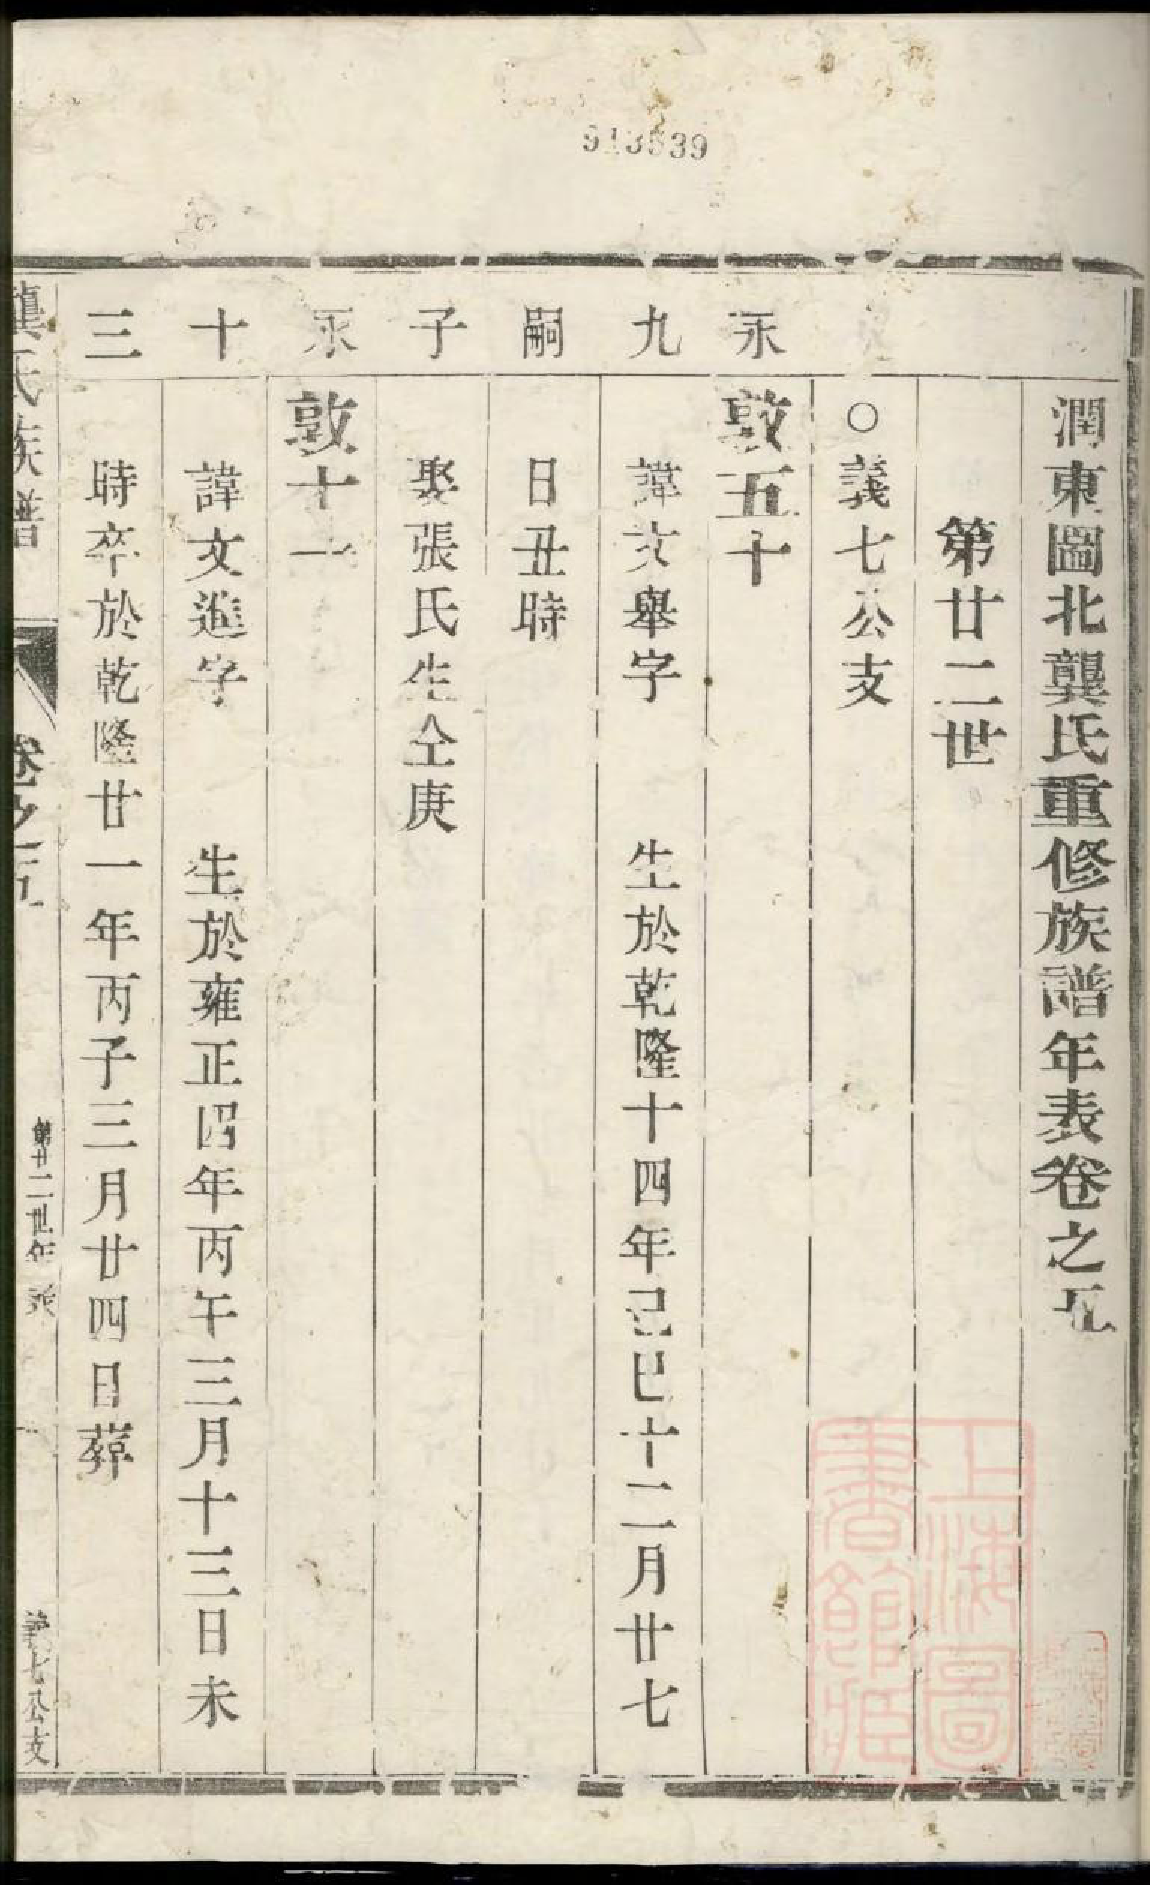 913539
潤東圖北龔氏重修族譜年表卷之五
第廿二世
○義七公支
承 敦五十
九 諱文舉字 生於乾隆十四年己巳十二月廿七
嗣 日丑時
子 娶張氏生仝庚
承 敦十一
十 諱文進字 生於雍正四年丙午三月十三日未
三 時卒於乾隆廿一年丙子三月廿四日葬
龔氏族譜 卷之五 第廿二世年表 一 義七公支
上海圖書館藏